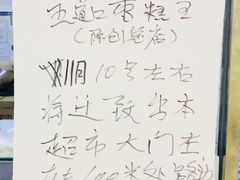 五道口枣糕王
(原创总店)
11月10号左右
将迁致出本
超市大门左
100米处